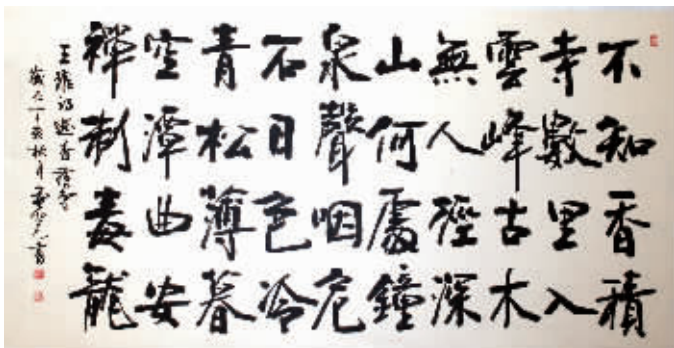 不知香積
寺數里入
雲峰古木
無人徑深
山何處鐘
泉聲咽危
石日色冷
青松薄暮
空潭曲安
禪制毒龍
王維詩過香積寺
歲在丁亥秋月書